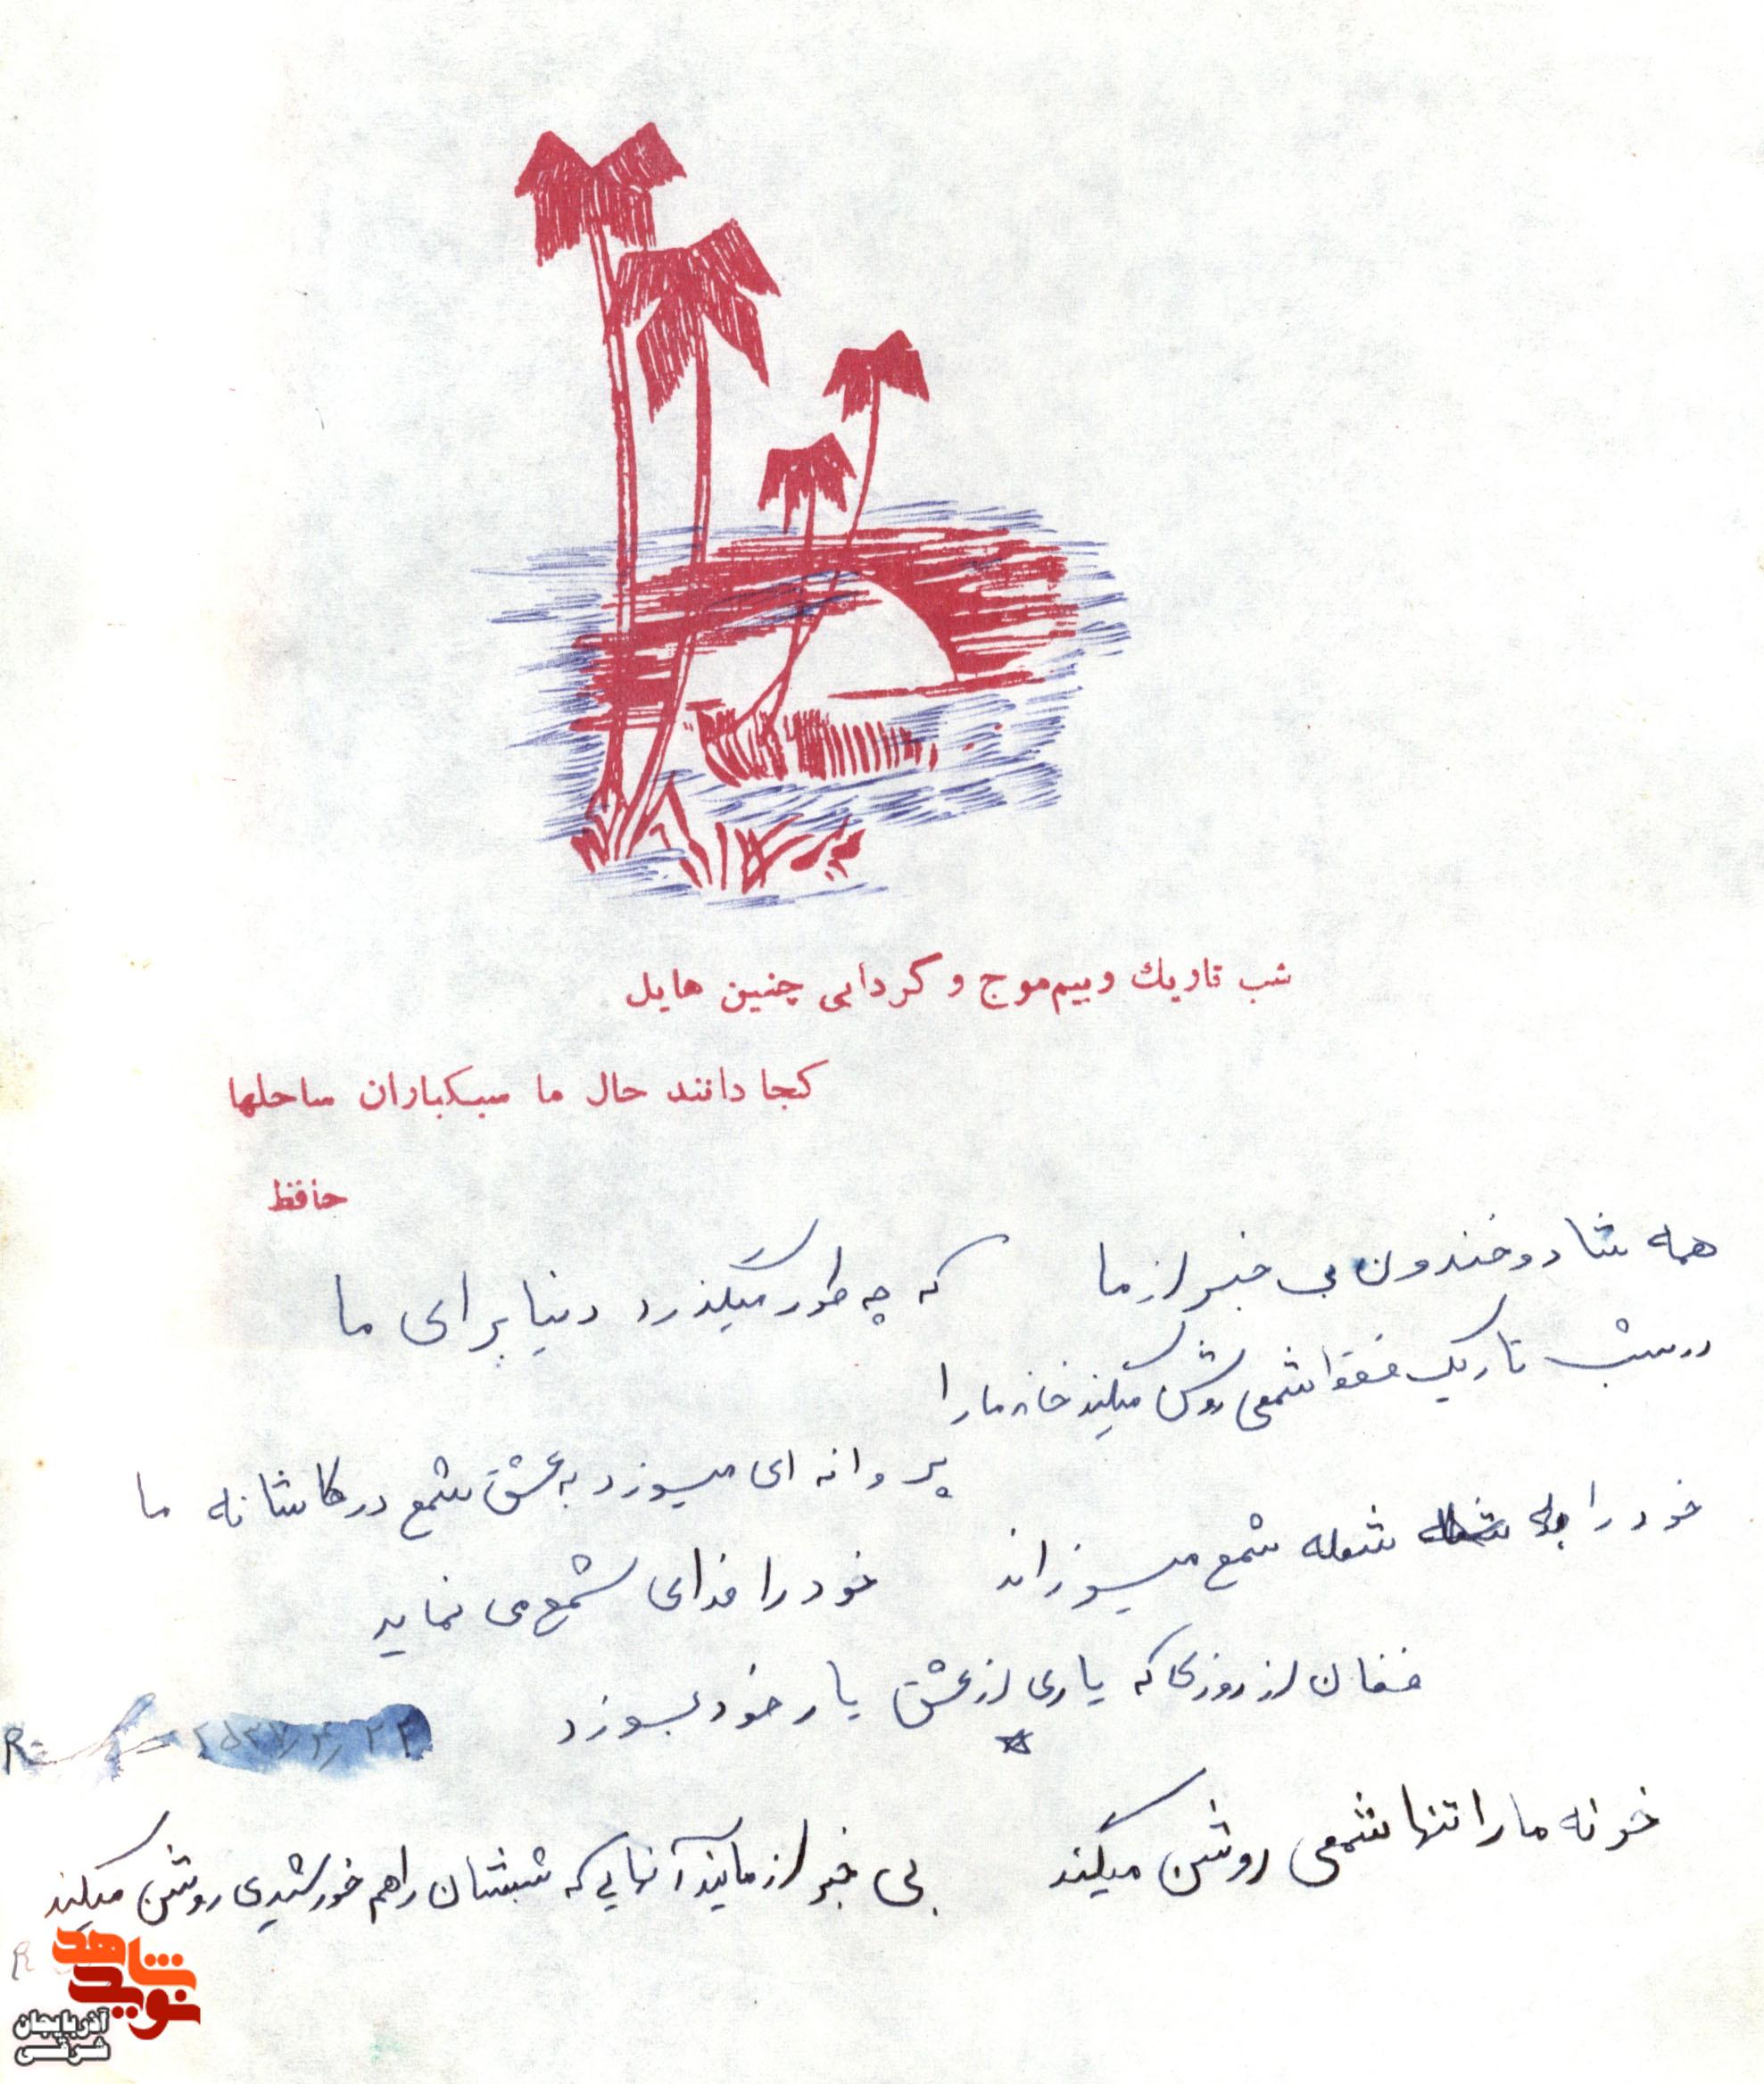 شب تاریك و بیم موج و گردابی چنین هایل
کجا دانند حال ما سبکباران ساحلها
حافظ
همه شاد و خندون بی خبر از ما که چه طور میگذرد دنیا برای ما
در شب تاریک فقط شمعی روشن میکند خانه ما را
پروانه ای میسوزد به عشق شمع در کاشانه ما
خود را به شعله شعله شمع میسوزاند خود را فدای شمع می نماید
فغان از روزی که یاری از عشق یار خود بسوزد
۲۵۳۷/۴/۲۲
خونه ما را تنها شمعی روشن میکند بی خبر از مایند آنهایی که شبشان را هم خورشیدی روشن میکند
R
نوید شاهد
آذربایجان
شرقی